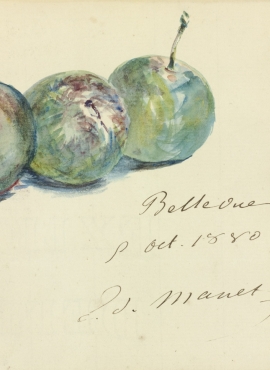 Bellevue
oct. 1880
Ed. Manet